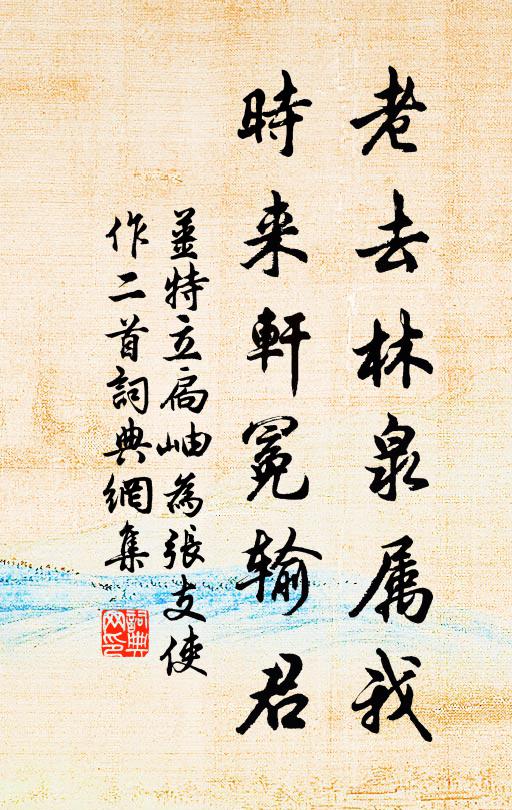 老去林泉属我
時来軒冕输君
姜特立扄岫為張支使
作二首詞典網集
詞典网印